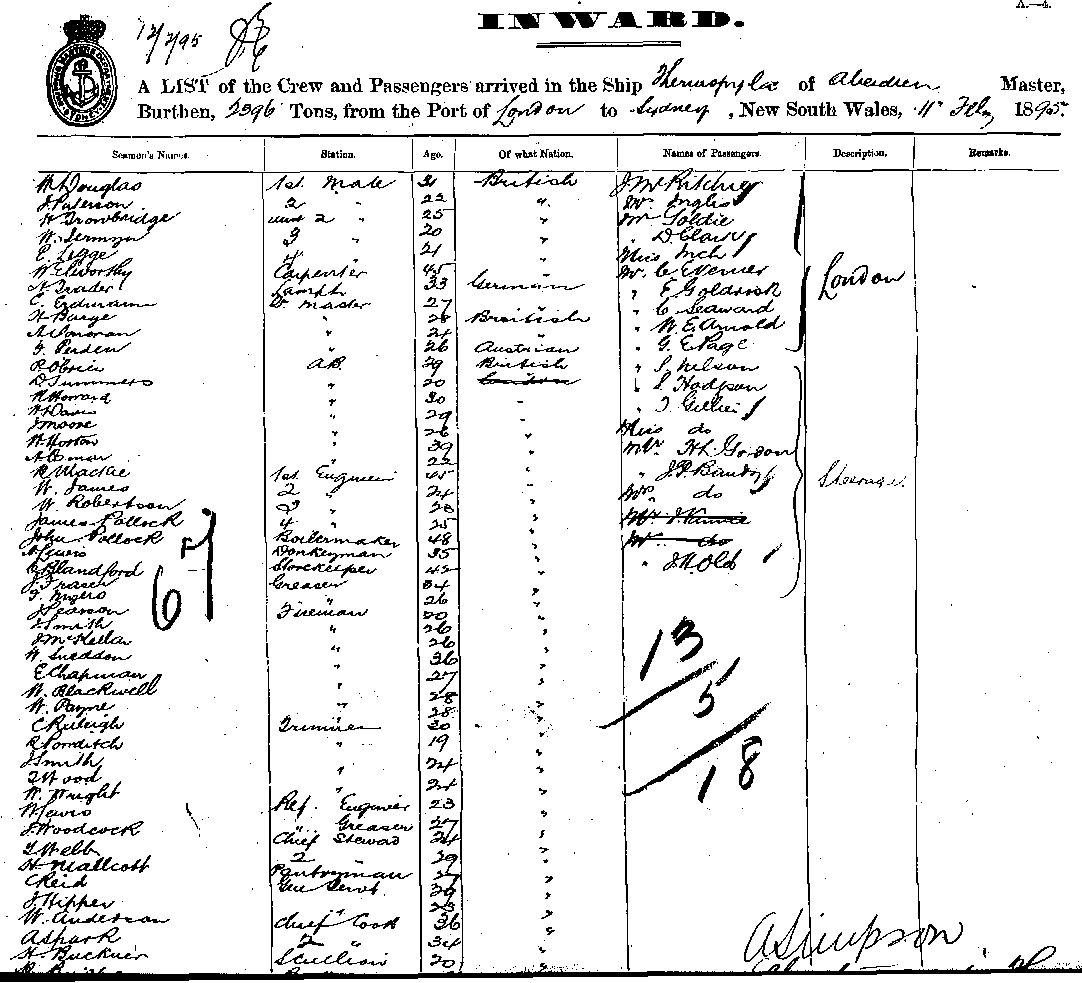 A.—4.
INWARD.
12/2/95
A LIST of the Crew and Passengers arrived in the Ship Thermopylae of Aberdeen Master,
Burthen, 2396 Tons, from the Port of London to Sydney, New South Wales, 11th Feby 1895.
Seamen's Names. Station. Age. Of what Nation. Names of Passengers. Description. Remarks.
Douglas 1st Mate 31 British J McRitchie
J Paterson 2 " 22 " Mr Inglis
H Trowbridge 2 " 25 " Mr Goldie
W. Jermyn 3 " 20 " " D Clark
E. Legge 4 " 21 " Miss Inch
W Elworthy Carpenter 45 " Mr C E Verner London
Trader Lamptr 33 German " E Goldsmith
E. Erdmann Qr Master 27 " " C Seaward
H Barge " 28 British " W. E. Arnold
A Donovan " 24 " " G E Page
Perden " 26 Austrian " S Nelson
R OBrien AB. 29 British " S Hodpson
D Summers " 20 " " J Gillies
R Howard " 30 " Miss do
H Davis " 29 "
J Moore " 26 " Mr Hh Gordon
W Horton " 39 " " J. P. Bandy Steerage
" 22 " Mrs do
R Mackie 1st Engineer 45 "
W. James 2 " 24 "
W. Robertson 3 " 28 "
James Pollock 4 " 25 "
John Pollock Boilermaker 48 " " J H Old
Lewis Donkeyman 35 "
Blandford Storekeeper 42 "
J Fraser Greaser 34 "
Myers " 26 "
J Pearson Fireman 20 "
J Smith " 26 "
J McKellar " 26 "
W. Sneddon " 36 "
E Chapman " 27 "
W. Blackwell " 28 "
W. Payne " 28 "
C Raleigh Trimmer 30 "
R Powditch " 19 "
J Smith " 24 "
J Wood " 24 "
W. Wright
Lewis Ref. Engineer 23 "
J Woodcock " Greaser 27 "
J Webb Chief Steward 24 "
H Mallcott 2 " 29 "
C Reid Pantryman 27 "
J Hipper Gen Servt 29 "
W. Anderson Chief Cook 36 "
A Spark 2 " 34 "
H Buckner Scullion 20 "
67
13
5
18
A Simpson